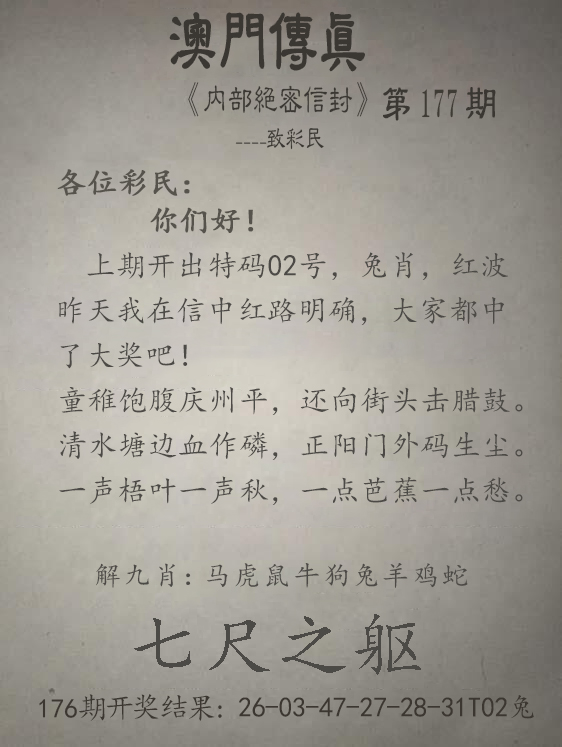 澳門傳眞
《内部絕密信封》第177期
----致彩民
各位彩民：
你们好！
上期开出特码02号，兔肖，红波
昨天我在信中红路明确，大家都中
了大奖吧！
童稚饱腹庆州平，还向街头击腊鼓。
清水塘边血作磷，正阳门外码生尘。
一声梧叶一声秋，一点芭蕉一点愁。
解九肖：马虎鼠牛狗兔羊鸡蛇
七尺之躯
176期开奖结果：26-03-47-27-28-31T02兔